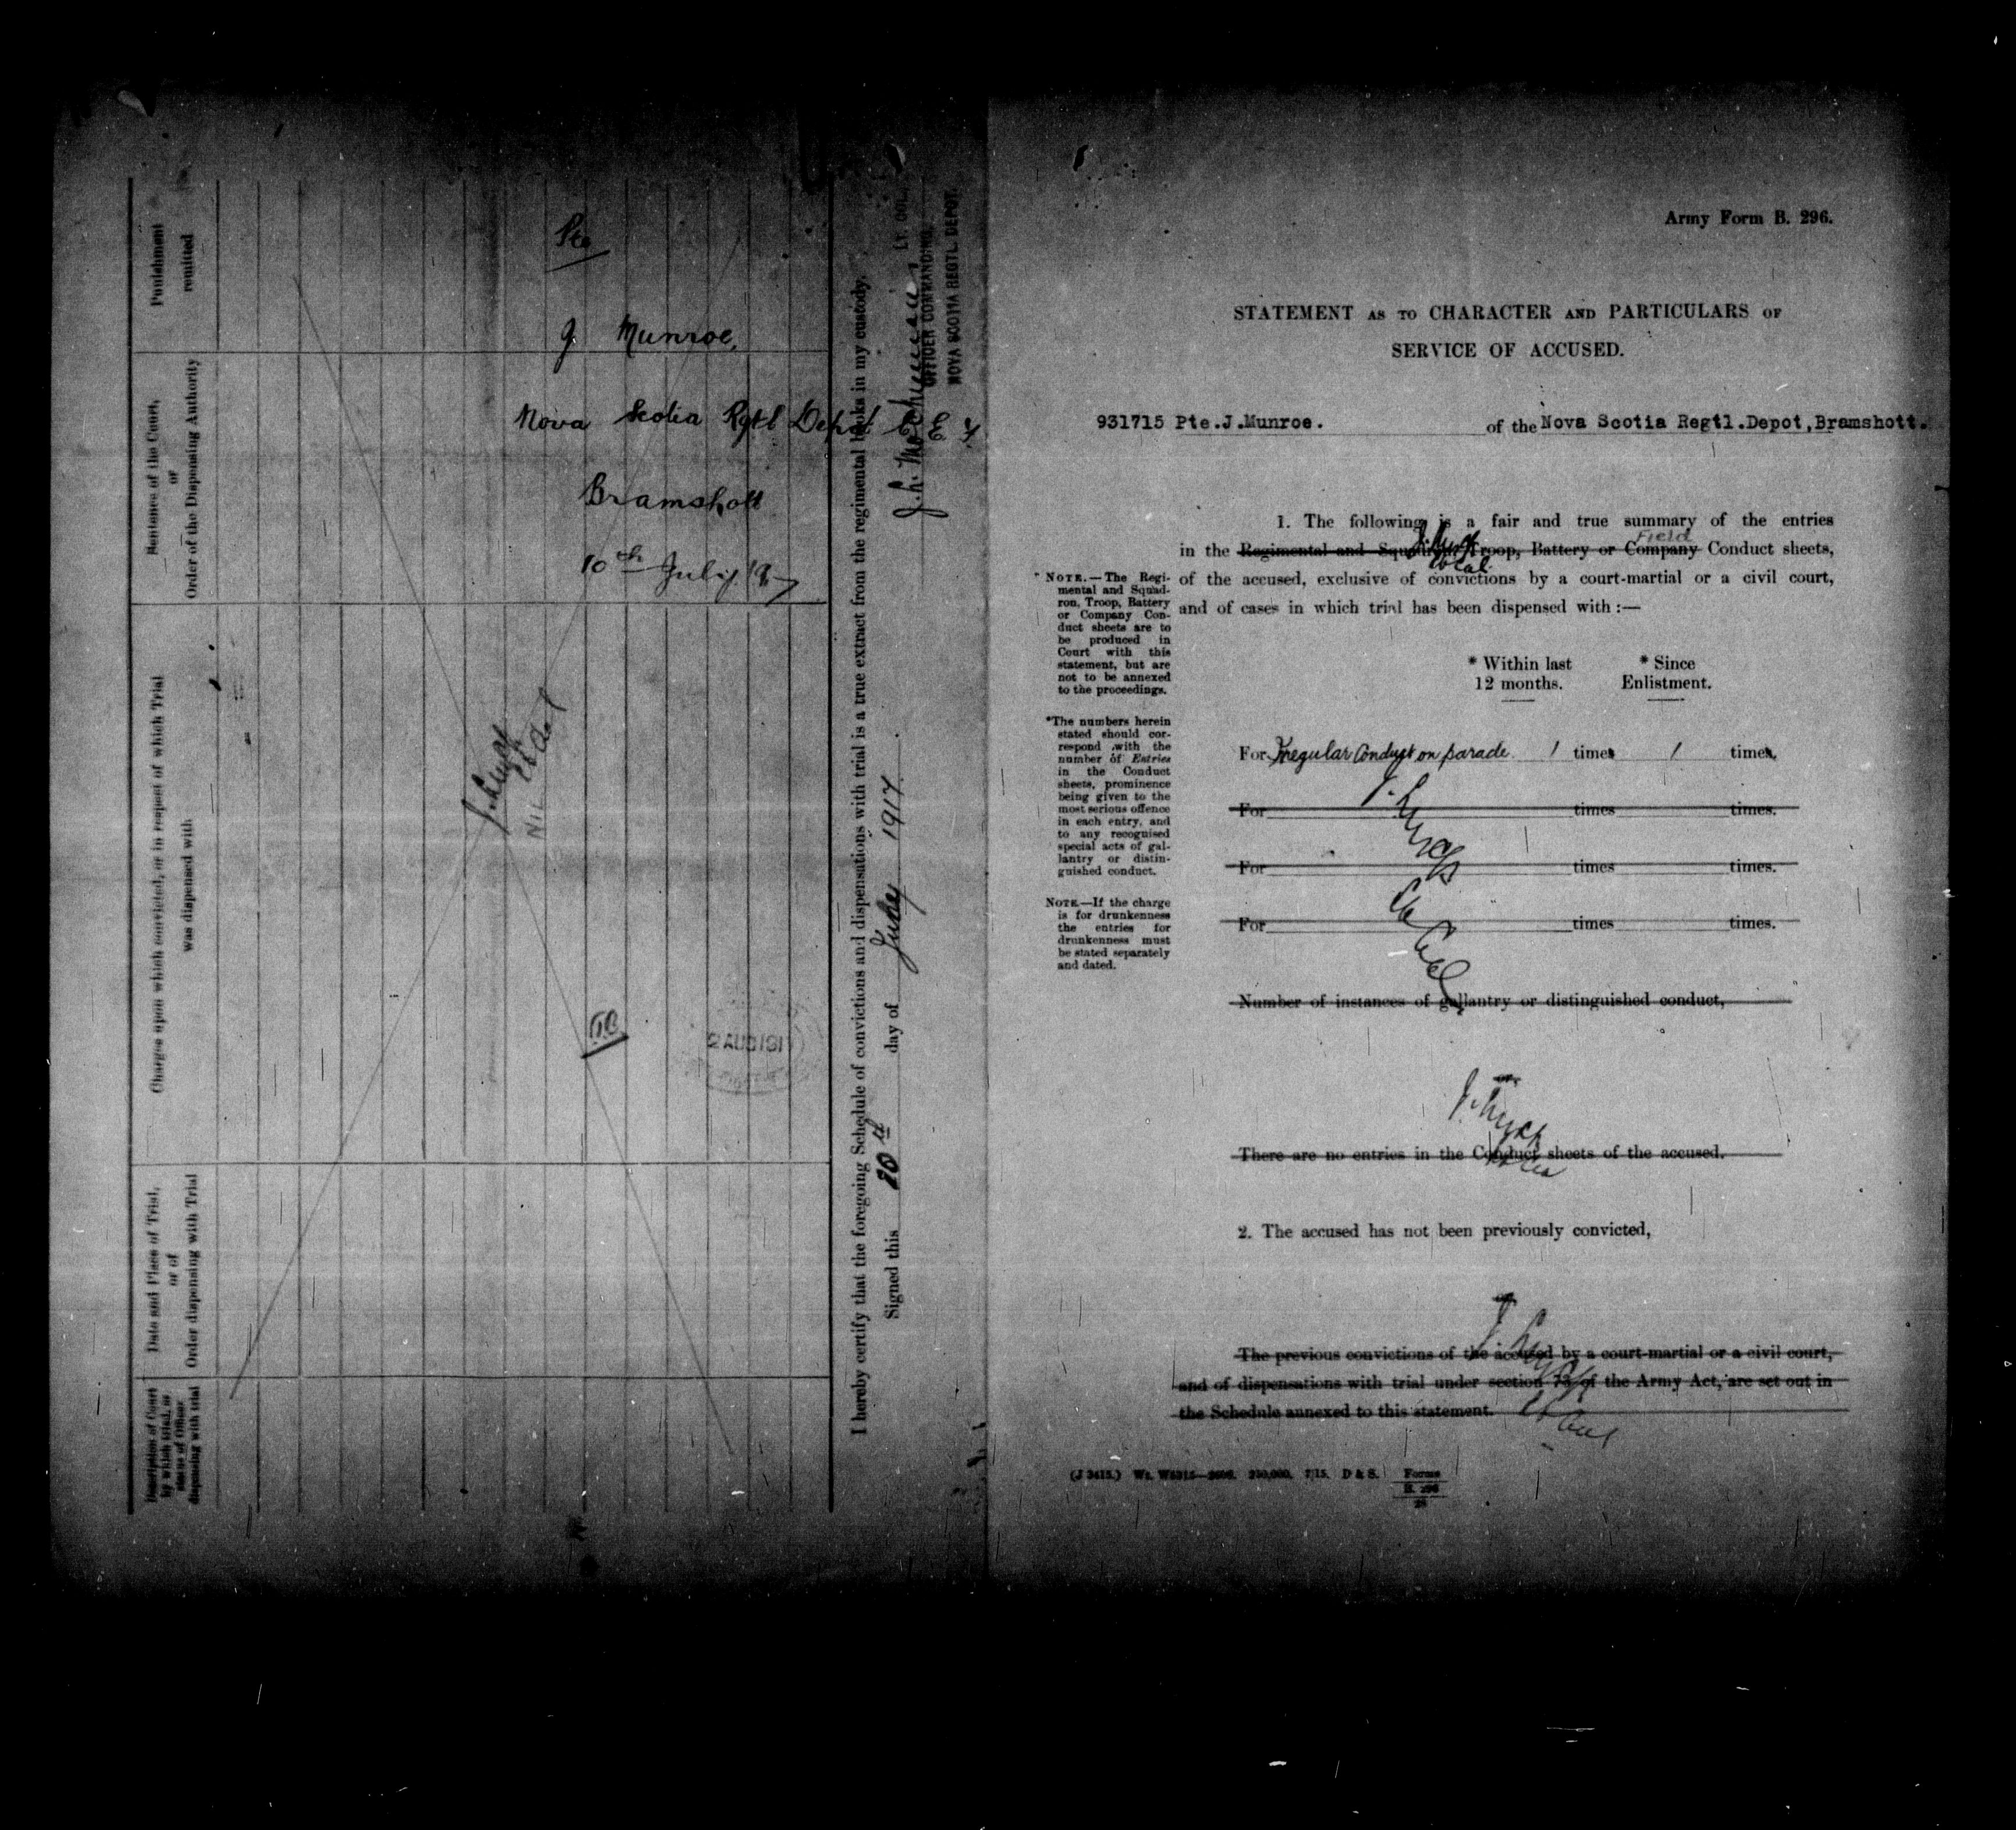 Punishment
remitted
Sentence of the Court,
or
Order of the Dispensing Authority
Charges upon which convicted, or in respect of which Trial
was dispensed with
Date and Place of Trial,
or of
Order dispensing with Trial
Description of Court
by which tried, or
status of Officer
dispensing with trial
Pte
J Munroe,
Nova Scotia Rgtl Depot C E F
Bramshott
10th July '17
NIL
2 AUG 191
I hereby certify that the foregoing Schedule of convictions and dispensations with trial is a true extract from the regimental books in my custody.
Signed this 20th day of July 1917.
LT. COL.
OFFICER COMMANDING,
NOVA SCOTIA REGTL. DEPOT.
Army Form B. 296.
STATEMENT AS TO CHARACTER AND PARTICULARS OF
SERVICE OF ACCUSED.
931715 Pte.J.Munroe. of the Nova Scotia Regtl.Depot,Bramshott.
1. The following is a fair and true summary of the entries
Field
in the Regimental and Squadron, Troop, Battery or Company Conduct sheets,
of the accused, exclusive of convictions by a court-martial or a civil court,
and of cases in which trial has been dispensed with :—
* NOTE.—The Regi-
mental and Squad-
ron, Troop, Battery
or Company Con-
duct sheets are to
be produced in
Court with this
statement, but are
not to be annexed
to the proceedings.
*The numbers herein
stated should cor-
respond with the
number of Entries
in the Conduct
sheets, prominence
being given to the
most serious offence
in each entry, and
to any recognised
special acts of gal-
lantry or distin-
guished conduct.
NOTE—If the charge
is for drunkenness
the entries for
drunkenness must
be stated separately
and dated.
* Within last
12 months.
* Since
Enlistment.
For Irregular Conduct on parade 1 times 1 times,
For times times.
For times times.
For times times.
Number of instances of gallantry or distinguished conduct,
or
There are no entries in the Conduct sheets of the accused.
2. The accused has not been previously convicted,
or
The previous convictions of the accused by a court-martial or a civil court,
and of dispensations with trial under section 73 of the Army Act, are set out in
the Schedule annexed to this statement.
Forms
B. 296
28